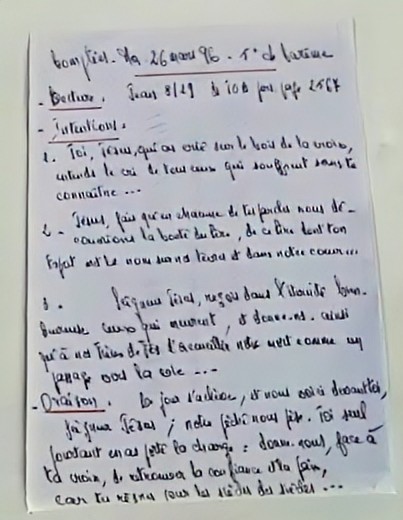 Complies - Ma 26 mars 96 - 5° de Carême
- Lecture. Jean 8/29
- Intentions.
1. Toi, Jésus, qui as crié sur le bois de la croix,
entends le cri de tous ceux qui souffrent sans te
connaître ...
2 - Jésus, fais qu'en chacune de tes paroles nous dé-
couvrions la bonté du Père, de ce Père dont ton
Esprit est le nom dans nos lèvres et dans notre coeur...
3. Seigneur Jésus, reçois dans
ceux qui meurent, et donne-nous ainsi
qu'à nos frères de accueillir notre mort comme un
passage vers la vie ...
- Oraison. Le jour s'achève, et nous voici devant toi,
Seigneur Jésus ; notre péché nous pèse. Toi seul
pourtant en as porté la charge : donne-nous, face à
ta croix, de retrouver la confiance et la paix,
car tu règnes pour les siècles des siècles ...